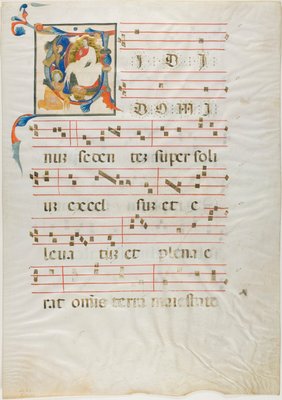 IDI
DOMI
nuz seden tez super soli
uz excel suz et e
leva tuz et plena e
rat omis terra maiestate